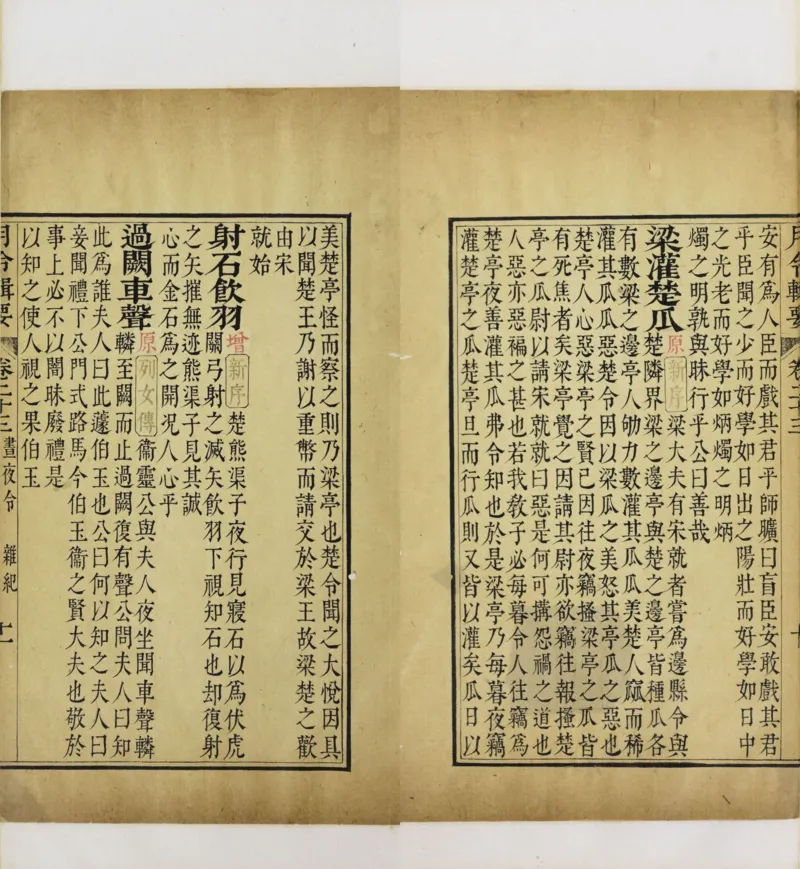 月令輯要 卷二十三
安有爲人臣而戲其君乎師曠曰盲臣安敢戲其君
乎臣聞之少而好學如日出之陽壯而好學如日中
之光老而好學如炳燭之明炳
燭之明孰與昧行乎公曰善哉
梁灌楚瓜
原 新序 梁大夫有宋就者嘗爲邊縣令與
楚隣界梁之邊亭與楚之邊亭皆種瓜各
有數梁之邊亭人劬力數灌其瓜瓜美楚人窳而稀
灌其瓜瓜惡楚令因以梁瓜之美怒其亭瓜之惡也
楚亭人心惡梁亭之賢已因往夜竊搔梁亭之瓜皆
有死焦者矣梁亭覺之因請其尉亦欲竊往報搔楚
亭之瓜尉以請宋就就曰惡是何可搆怨禍之道也
人惡亦惡褊之甚也若我敎子必每暮令人往竊爲
楚亭夜善灌其瓜弗令知也於是梁亭乃每暮夜竊
灌楚亭之瓜楚亭旦而行瓜則又皆以灌矣瓜日以
美楚亭怪而察之則乃梁亭也楚令聞之大悅因具
以聞楚王乃謝以重幣而請交於梁王故梁楚之歡
由宋
就始
射石飮羽
增 新序 楚熊渠子夜行見寢石以爲伏虎
關弓射之滅矢飮羽下視知石也却復射
之矢摧無迹熊渠子見其誠
心而金石爲之開況人心乎
過闕車聲
原 列女傳 衞靈公與夫人夜坐聞車聲轔
轔至闕而止過闕復有聲公問夫人曰知
此爲誰夫人曰此蘧伯玉也公曰何以知之夫人曰
妾聞禮下公門式路馬今伯玉衞之賢大夫也敬於
事上必不以闇昧廢禮是
以知之使人視之果伯玉
月令輯要 卷二十三 晝夜令 雜紀 十一